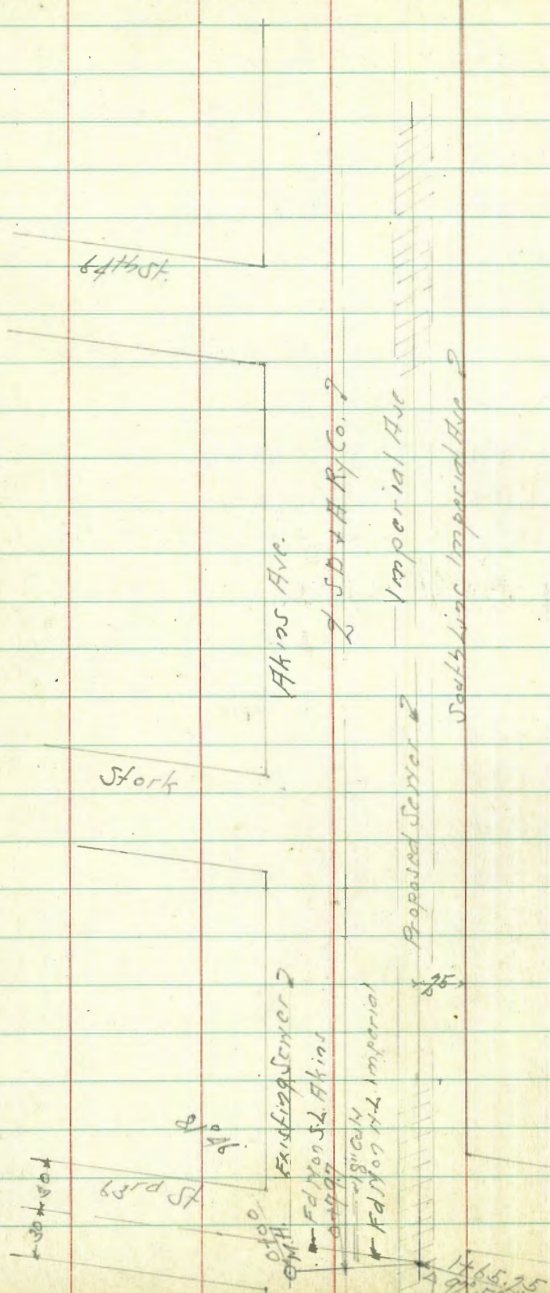 64th St.
Akins Ave.
S D & A Ry Co.
Imperial Ave
South Line Imperial Ave
Stork
Proposed Sewer
25
Existing Sewer
Fd Mon S.L. Akins
18" Culv
Fd Mon N.L. Imperial
63rd St
30 30
0+00
M.H.
1+65.25